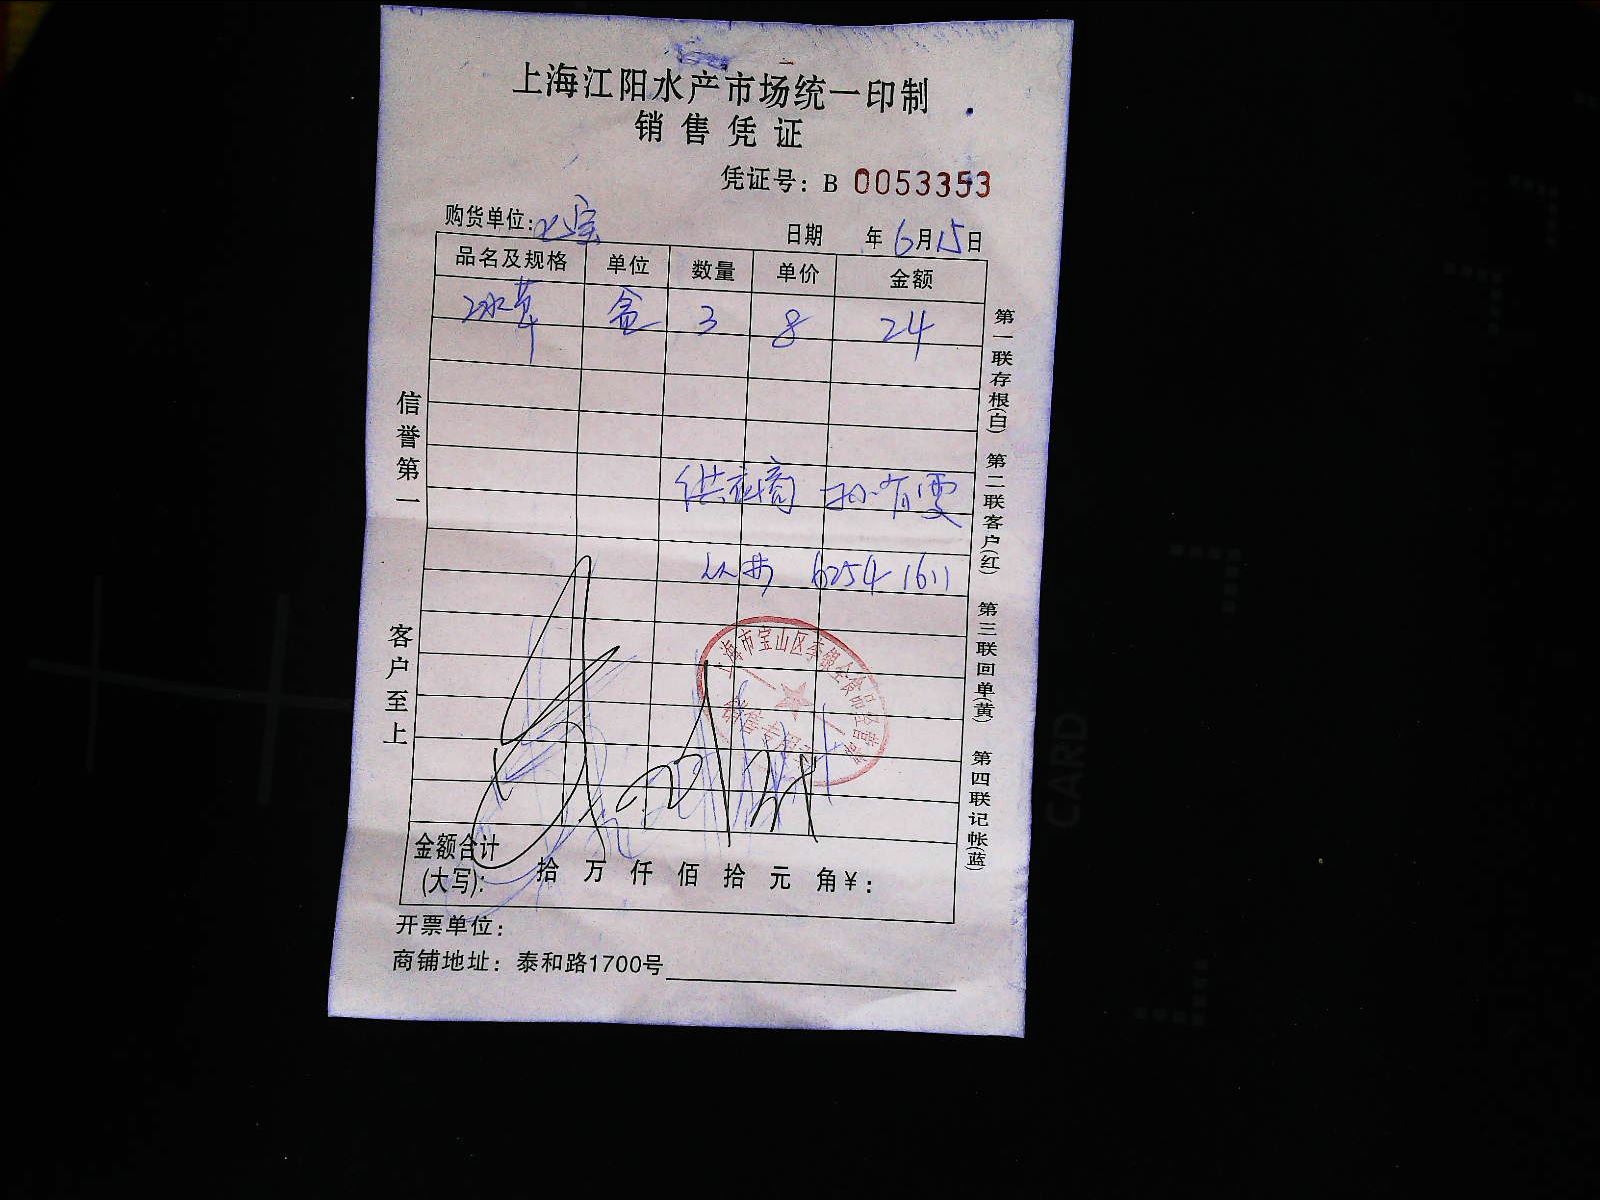 上海江阳水产市场统一印制
销售凭证
凭证号：B 0053353
购货单位：七宝
日期 年6月15日
品名及规格 单位 数量 单价 金额
冰草 盒 3 8 24
供应商 孙有雯
6254 1611
上海市宝山区李银全食品经营部
销售专用章
金额合计
(大写)： 拾 万 仟 佰 拾 元 角 ¥：
开票单位：
商铺地址：泰和路1700号
信誉第一
客户至上
第一联存根(白)
第二联客户(红)
第三联回单(黄)
第四联记帐(蓝)
CARD